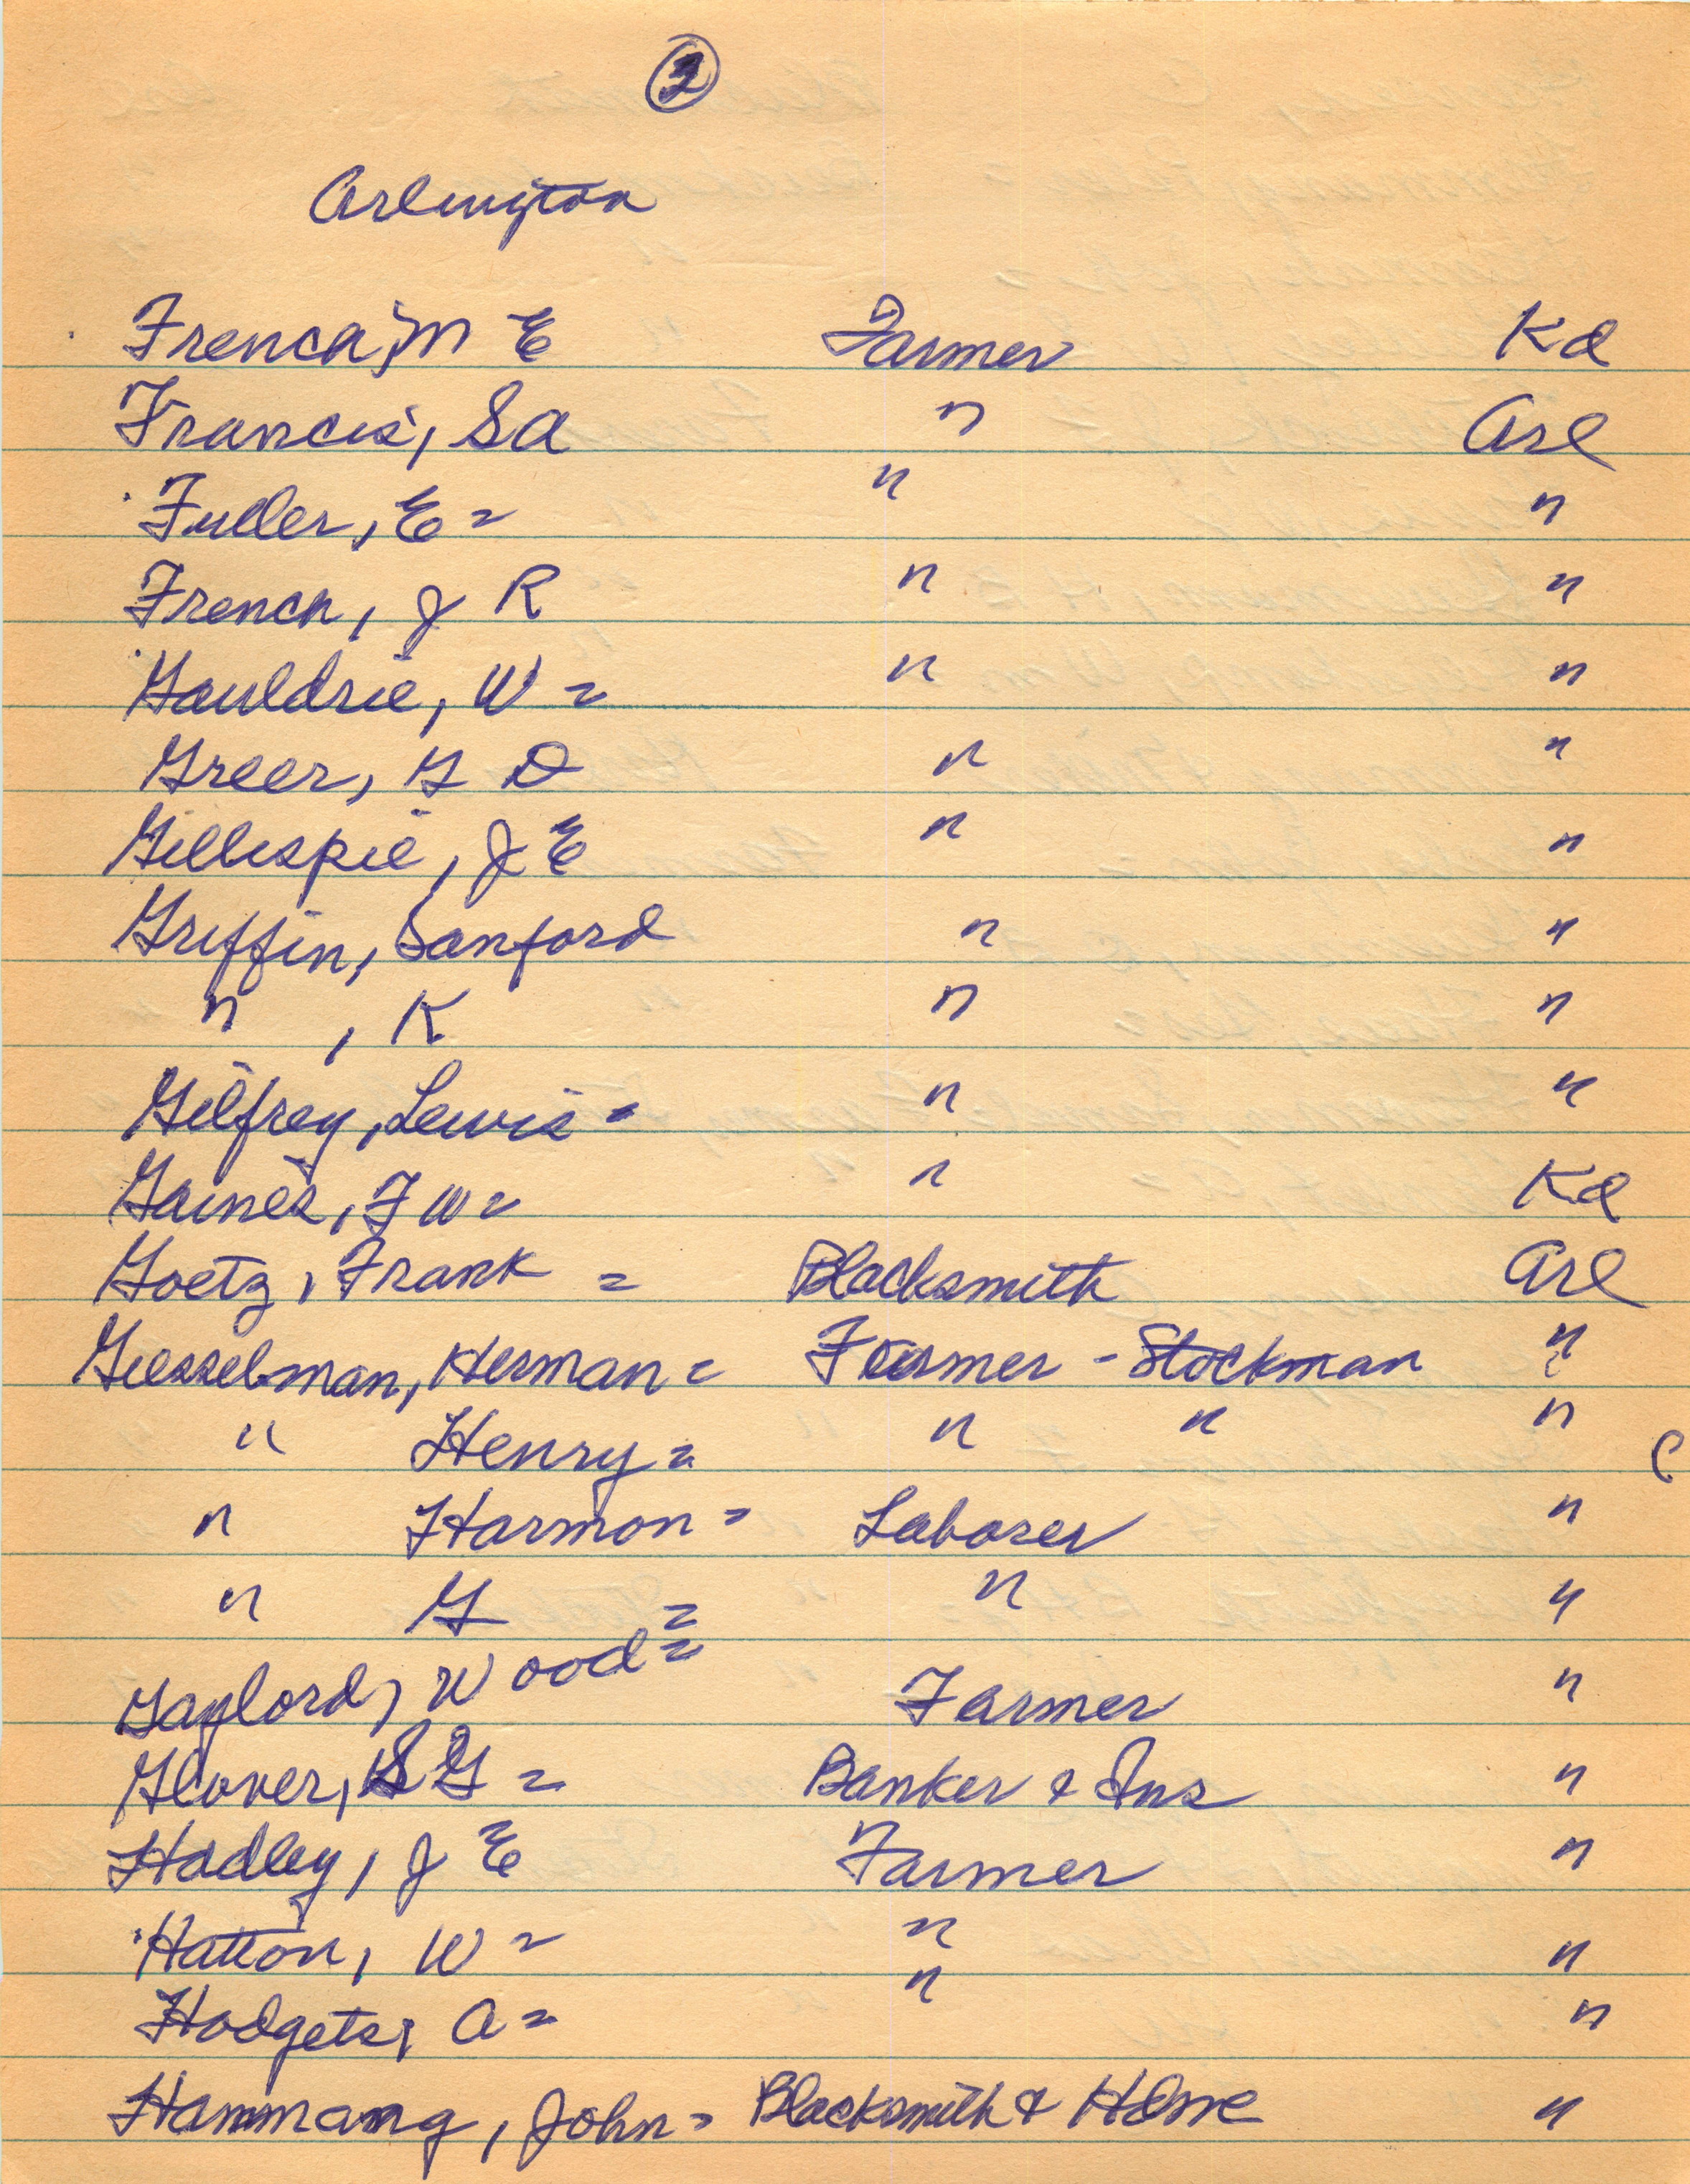 2
Arlington
French, M E Farmer Kd
Francis, S A " Arl
Fuller, E = " "
French, J R " "
Gauldrie, W = " "
Greer, G D " "
Gillespie, J E " "
Griffin, Sanford " "
" , K " "
Gilfrey, Lewis = " "
Gaines, F W = " Kd
Goetz, Frank = Blacksmith Arl
Giesselman, Herman = Farmer - Stockman "
" Henry = " " "
" Harmon = Laborer "
" G = " "
Gaylord, Wood = Farmer "
Glover, S G = Banker & Ins "
Hadley, J E Farmer "
Hatton, W = " "
Hodgets, A = " "
Hammang, John = Blacksmith & Hdwe "